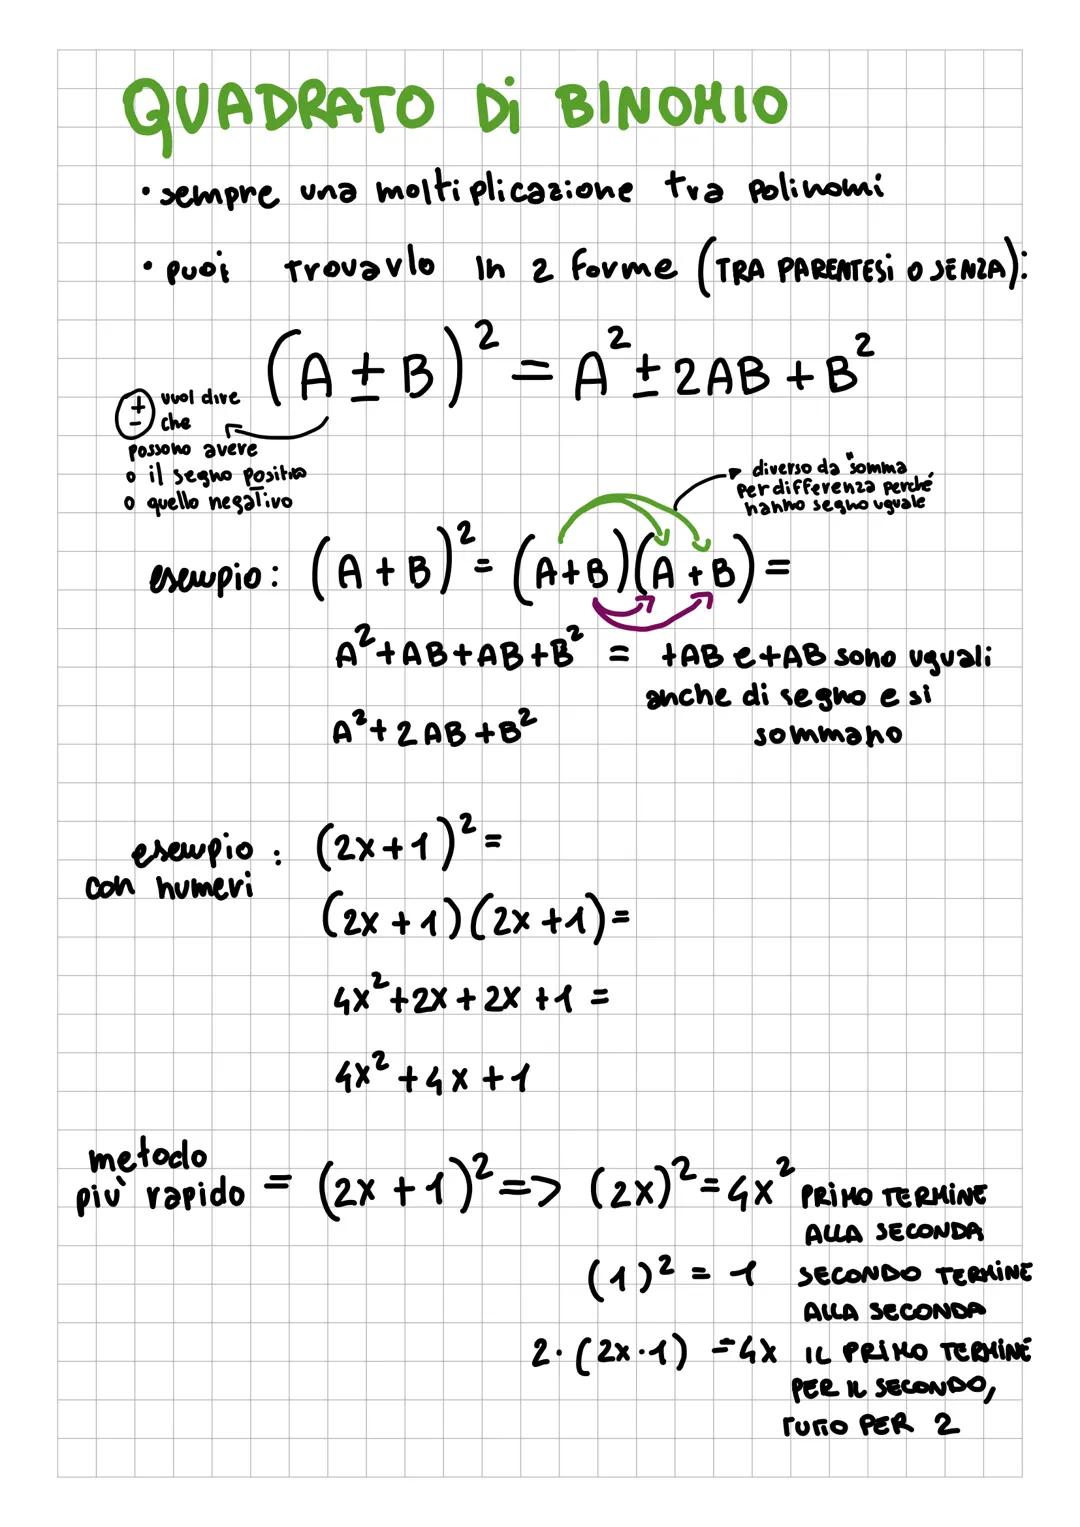 QUADRATO Di BINOMIO
• sempre una moltiplicazione tra polinomi
• puoi trovarlo in 2 forme (TRA PARENTESi O SENZA):
(A ± B)² = A² ± 2AB + B²
± vuol dire
che
possono avere
o il segno positivo
o quello negativo
diverso da "somma
per differenza perché
hanno segno uguale
esempio: (A + B)² = (A+B)(A + B) =
A² + AB + AB + B² = +AB e +AB sono uguali
anche di segno e si
sommano
A² + 2AB + B²
esempio : (2x+1)² =
con numeri
(2x + 1)(2x + 1) =
4x² + 2x + 2x + 1 =
4x² + 4x + 1
metodo
più rapido = (2x + 1)² => (2x)² = 4x² PRiMO TERMiNE
ALLA SECONDA
(1)² = 1 SECONDO TERMiNE
ALLA SECONDA
2 · (2x · 1) = 4x IL PRiMO TERMiNE
PER IL SECONDO,
TUTTO PER 2